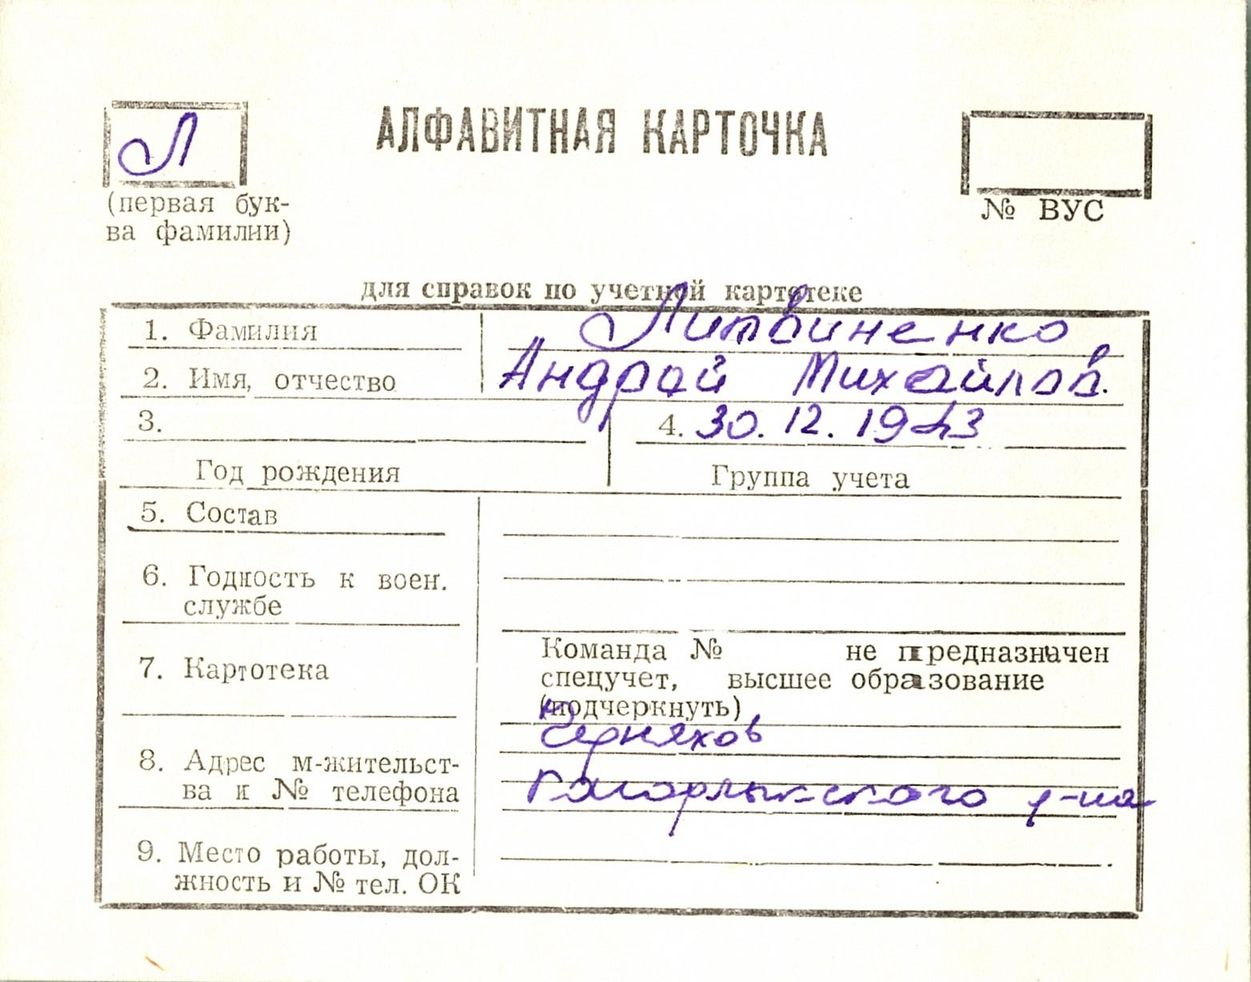 Л
АЛФАВИТНАЯ КАРТОЧКА
(первая бук-
ва фамилии)
№ ВУС
для справок по учетной картотеке
1. Фамилия Литвиненко
2. Имя, отчество Андрей Михайлов.
3.
4. 30.12.1923
Год рождения
Группа учета
5. Состав
6. Годность к воен.
службе
7. Картотека
Команда № не предназначен
спецучет, высшее образование
(подчеркнуть)
8. Адрес м-жительст-
ва и № телефона
Черняхов
Кагарлыкского р-на
9. Место работы, дол-
жность и № тел. ОК